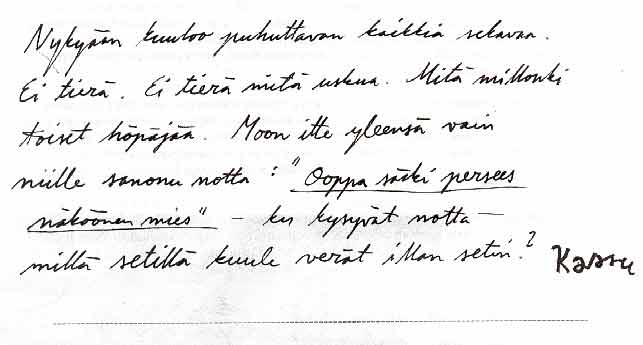 Nykyään kuuloo puhuttavan kaikkia sekavaa.
Ei tierä. Ei tierä mitä uskua. Mitä millonki
toiset höpäjää. Moon itte yleensä vain
niille sanonu notta : "Ooppa säki persees
näköönen mies" – ku kysyvät notta –
millä setillä kuule verät illan setin?
Kassu